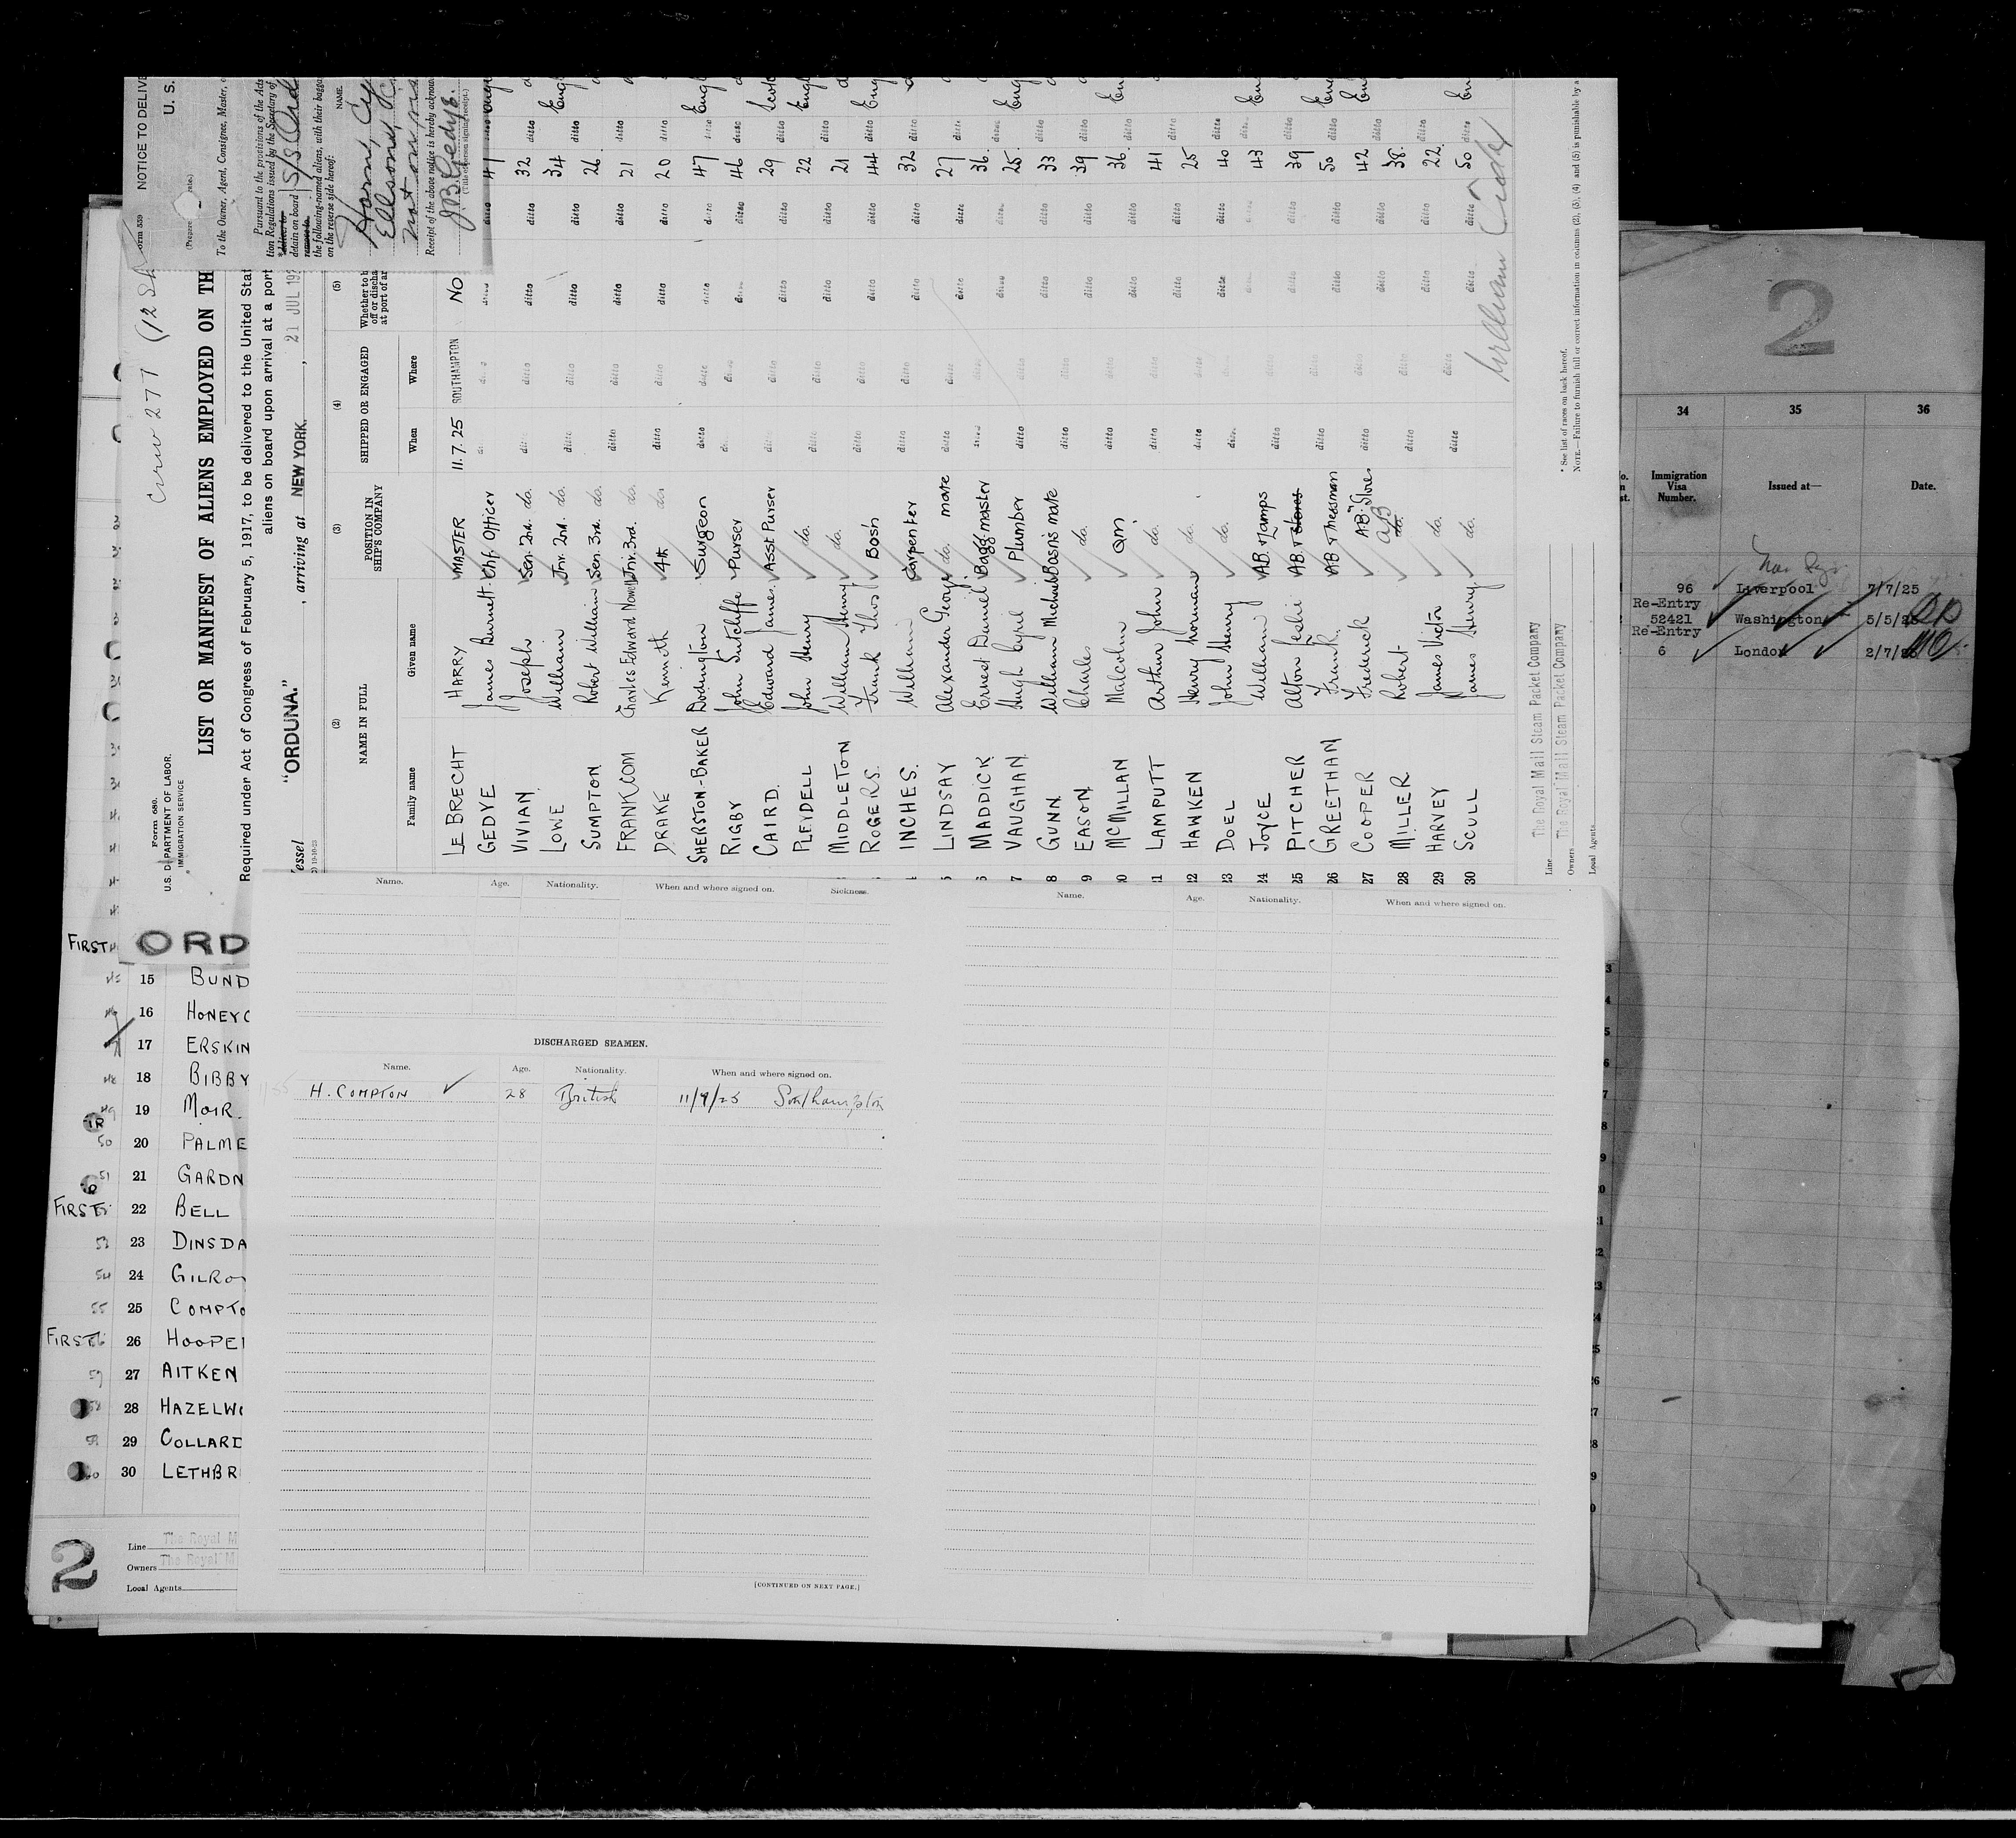 Form 559 NOTICE TO DELIVE
U. S.
(Prepare
To the Owner, Agent, Consignee, Master,
Pursuant to the provisions of the Acts
tion Regulations issued by the Secretary of
detain on board S/S Ord
the following-named aliens, with their bagga
on the reverse side hereof:
NAME.
Horn, Cy
Ellsony
Receipt of the above notice is hereby acknow
J.B. Gedye.
(Title of person signing receipt.)
Crew 277
Form 680.
U.S. DEPARTMENT OF LABOR.
IMMIGRATION SERVICE
LIST OR MANIFEST OF ALIENS EMPLOYED ON TH
Required under Act of Congress of February 5, 1917, to be delivered to the United Stat
aliens on board upon arrival at a port
essel "ORDUNA." , arriving at NEW YORK. , 21 JUL 192
(2) (3) (4) (5)
NAME IN FULL POSITION IN SHIP'S COMPANY SHIPPED OR ENGAGED Whether to b off or discha at port of ar
Family name Given name When Where
LE BRECHT HARRY MASTER 11.7.25 SOUTHAMPTON NO
GEDYE James Burnett Chf. Officer ditto 41
VIVIAN Joseph Sen. 2nd. do. ditto ditto ditto ditto 32 ditto
LOWE William Jnr. 2nd. do. ditto ditto ditto ditto 34 ditto Engl
SUMPTON Robert William Sen. 3rd. do. ditto ditto ditto ditto 26 ditto
FRANKCOM Charles Edward Jnr. 3rd. do. ditto ditto ditto ditto 21 ditto
DRAKE Kenneth 4th do. ditto ditto ditto ditto 20 ditto
SHERSTON-BAKER Dodington Surgeon ditto ditto ditto ditto 47 ditto Engl
RIGBY John Sutcliffe Purser ditto ditto ditto ditto 46 ditto
CAIRD. Edward James. Asst Purser ditto ditto ditto ditto 29 ditto Scotc
PLEYDELL John Henry do. ditto ditto ditto ditto 22 ditto Engl
MIDDLETON William Henry do. ditto ditto ditto ditto 21 ditto
ROGERS. Frank Thos Bosn ditto ditto ditto ditto 44 ditto Eng
INCHES. William Carpenter ditto ditto ditto ditto 32 ditto
5 LINDSAY Alexander George do. mate ditto ditto ditto ditto 27 ditto
6 MADDICK Ernest Daniel Bagg. master ditto ditto ditto ditto 36 ditto
7 VAUGHAN Hugh Cyril Plumber ditto ditto ditto ditto 25 ditto Eng
8 GUNN. William Michael Bosn's mate ditto ditto ditto ditto 33 ditto
9 EASON. Charles do. ditto ditto ditto ditto 39 ditto
20 McMILLAN Malcolm QM ditto ditto ditto ditto 36 ditto
21 LAMPUTT Arthur John do. ditto ditto ditto ditto 41 ditto
22 HAWKEN Henry Norman do. ditto ditto ditto ditto 25 ditto
23 DOEL John Henry do. ditto ditto ditto ditto 40 ditto
24 JOYCE William AB. & Lamps ditto ditto ditto ditto 43 ditto
25 PITCHER Alton Leslie AB. & Stores ditto ditto ditto ditto 39 ditto
26 GREETHAM Frank. AB & Messman ditto ditto ditto ditto 50 ditto
27 COOPER Frederick A.B. Stores ditto ditto ditto ditto 42 ditto
28 MILLER Robert AB do. ditto ditto ditto ditto 38. ditto
29 HARVEY James Victor do. ditto ditto ditto ditto 22 ditto
30 SCULL James Henry do. ditto ditto ditto ditto 50 ditto
Line The Royal Mail Steam Packet Company
Owners The Royal Mail Steam Packet Company
Local Agents
* See list of races on back hereof.
NOTE.—Failure to furnish full or correct information in columns (2), (3), (4) and (5) is punishable by a
Name. Age. Nationality. When and where signed on. Sickness.
Name. Age. Nationality. When and where signed on.
DISCHARGED SEAMEN.
Name. Age. Nationality. When and where signed on.
H. COMPTON 28 British 11/7/25 Southampton
[CONTINUED ON NEXT PAGE.]
FIRST
ORD
15 BUND
16 HONEYC
17 ERSKIN
18 BIBBY
19 MOIR.
20 PALME
21 GARDN
FIRST 22 BELL
23 DINSDA
24 GILRO
25 COMPTO
FIRST 26 HOOPE
27 AITKEN
28 HAZELW
29 COLLARD
30 LETHBR
2
Line The Royal M
Owners The Royal M
Local Agents
2
34 35 36
Immigration Visa Number. Issued at— Date.
96 Liverpool 7/7/25
Re-Entry
52421 Washington 5/5/2
Re-Entry
6 London 2/7/2